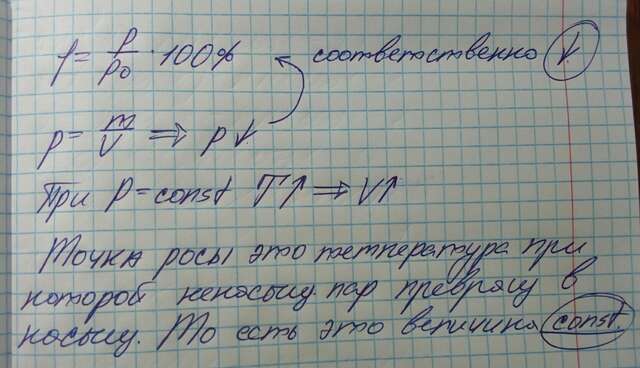 f = p/p₀ · 100% соответственно ↓
ρ = m/V ⇒ ρ↓
При P = const T↑ ⇒ V↑
Точка росы это температура при
которой ненасыщ. пар превращ в
насыщ. То есть это величина const.